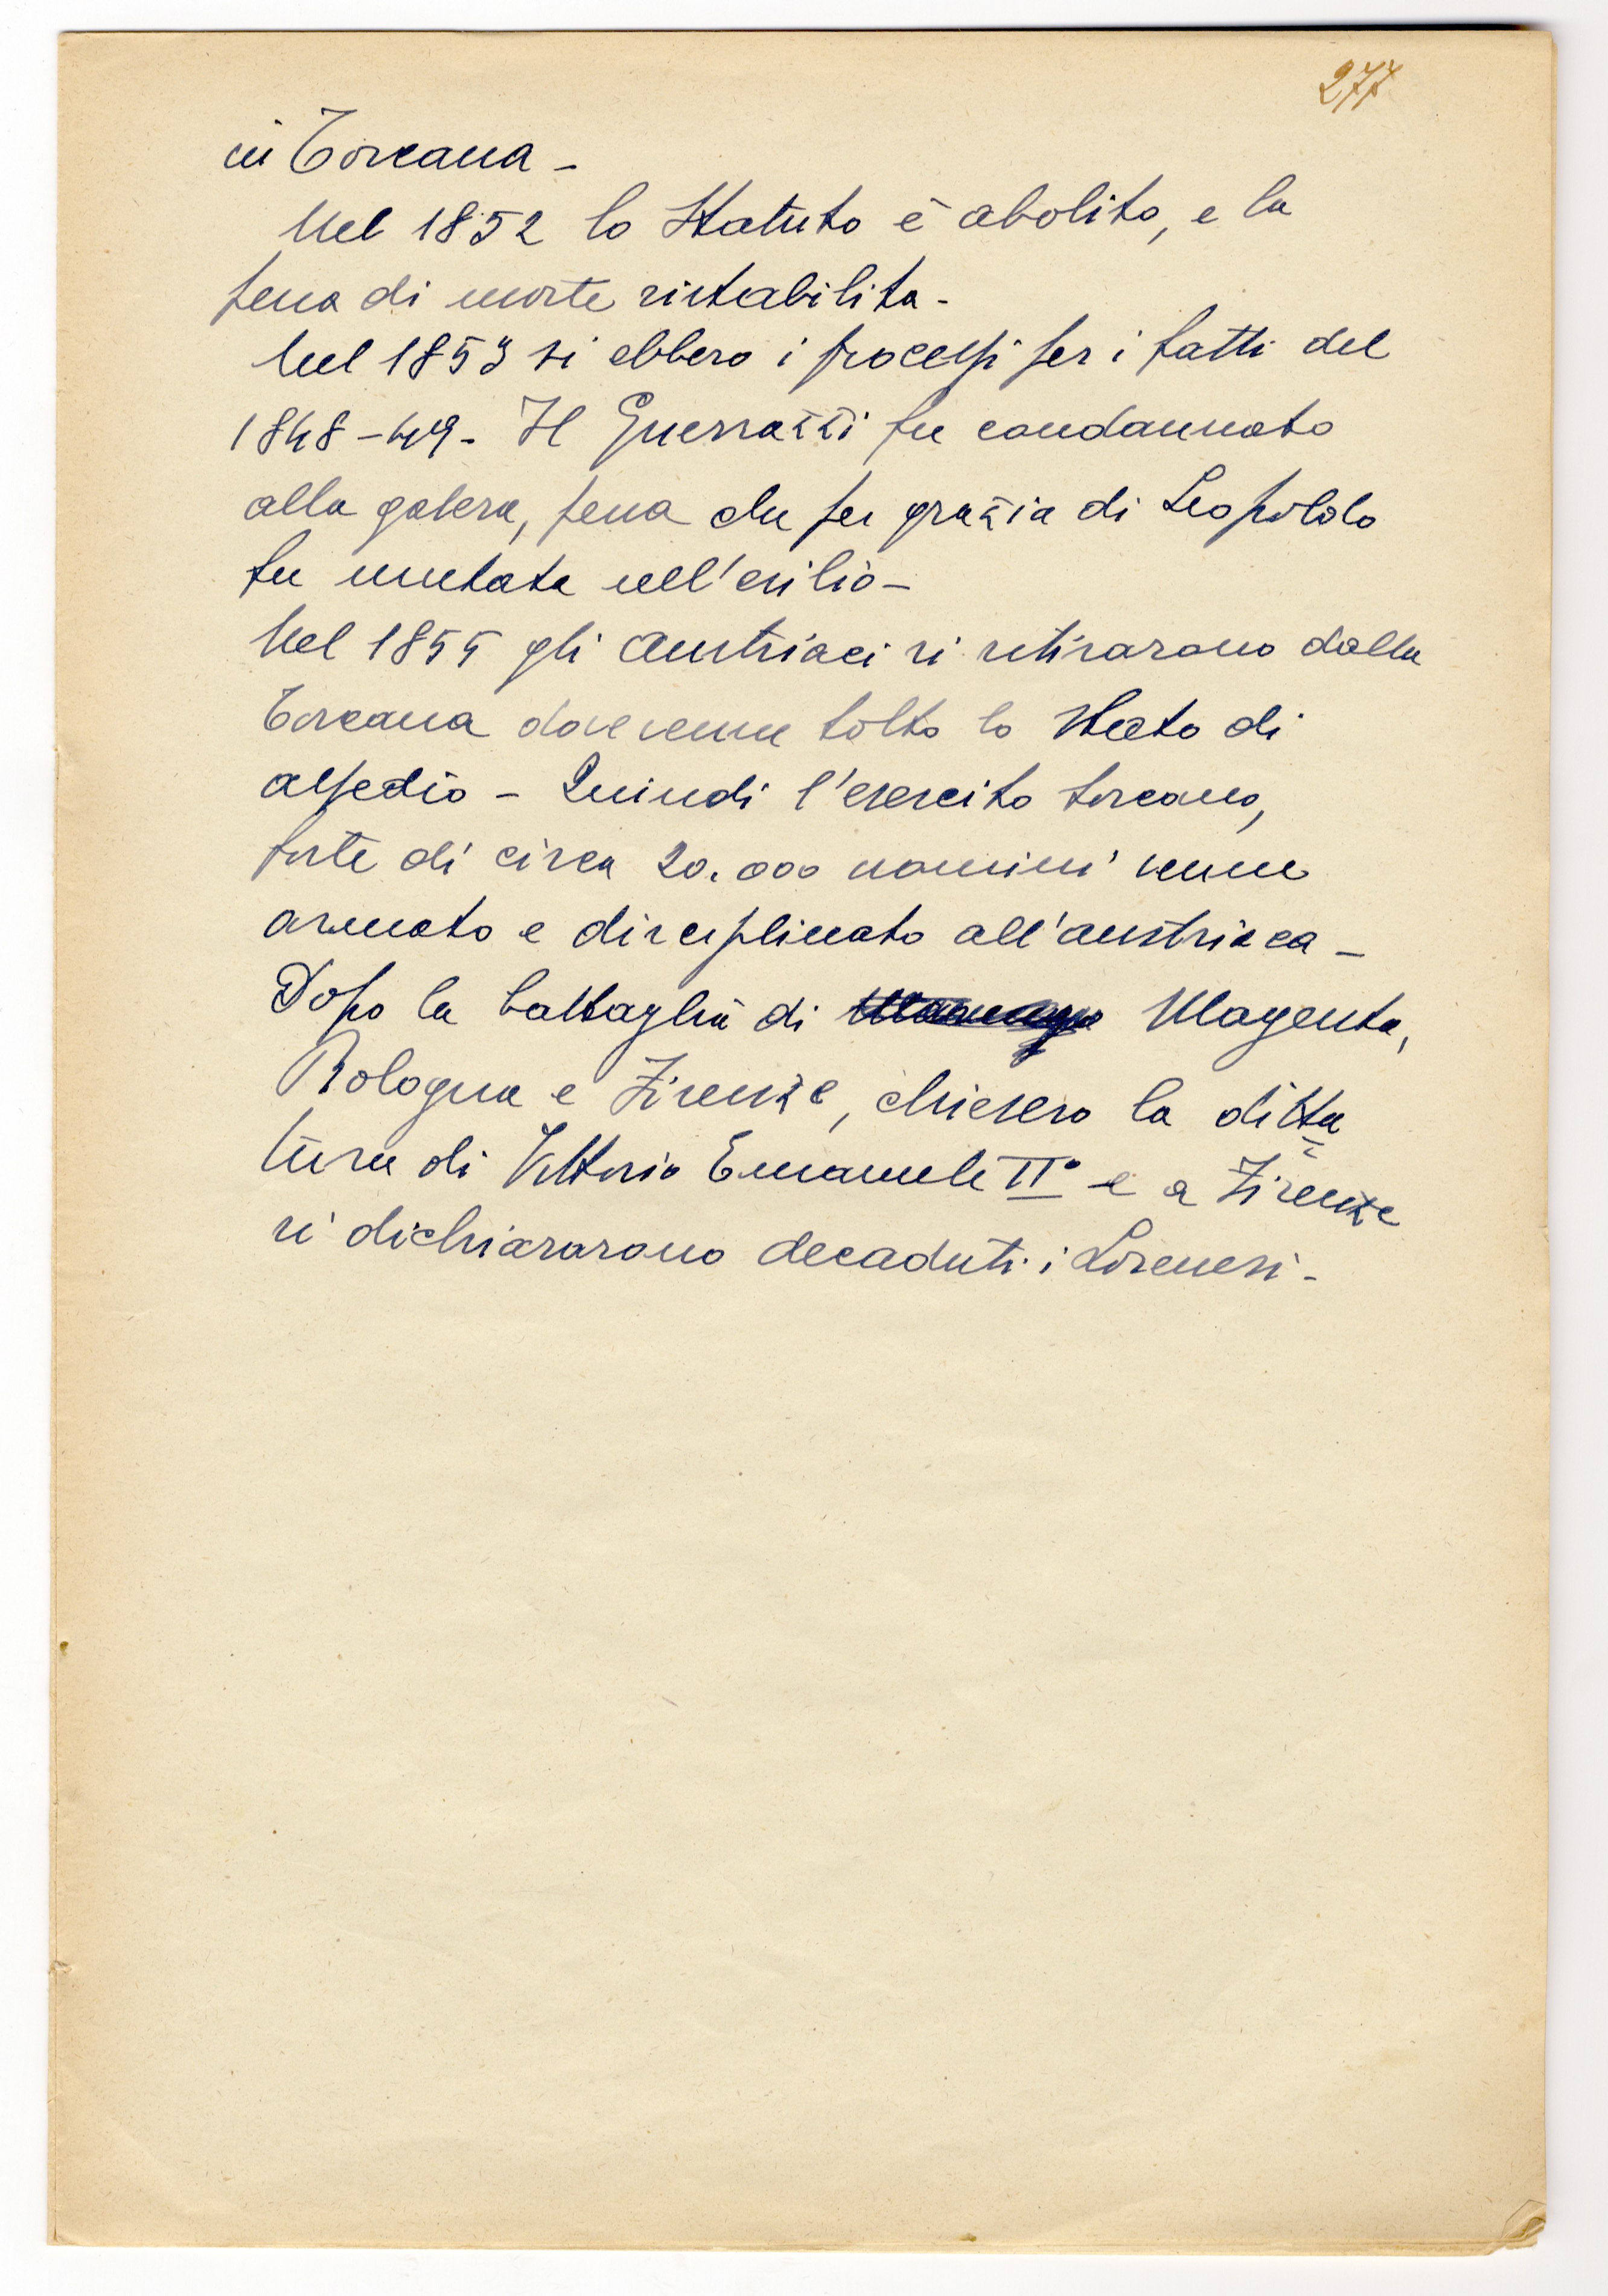 277
in Toscana -
Nel 1852 lo Statuto è abolito, e la
pena di morte ristabilita -
Nel 1853 si ebbero i processi per i fatti del
1848-49 - Il Guerrazzi fu condannato
alla galera, pena che per grazia di Leopoldo
fu mutata nell'esilio -
Nel 1855 gli austriaci si ritirarono dalla
Toscana dove venne tolto lo stato di
assedio - Quindi l'esercito toscano,
forte di circa 20.000 uomini venne
armato e disciplinato all'austriaca -
Dopo la battaglia di Magenta,
Bologna e Firenze, chiesero la ditta
tura di Vittorio Emanuele II° e a Firenze
si dichiararono decaduti i Lorenesi -